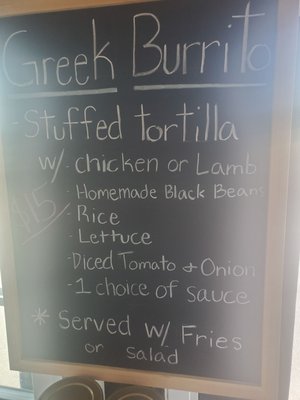 Greek Burrito
- Stuffed tortilla
w/ - chicken or Lamb
- Homemade Black Beans
$15
- Rice
- Lettuce
- Diced Tomato + Onion
- 1 choice of sauce
* Served w/ Fries
or salad